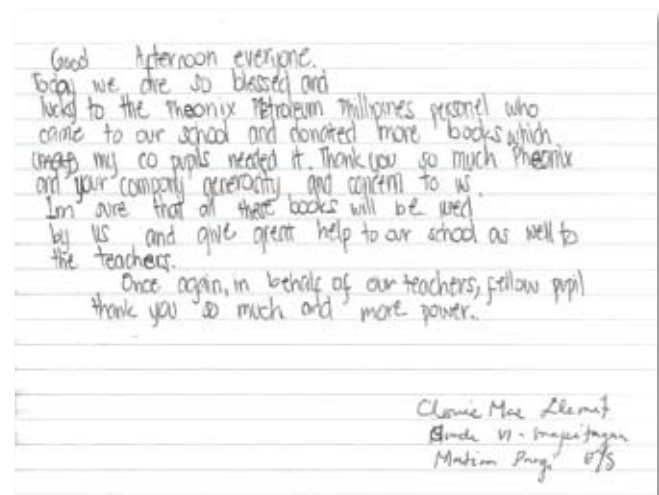 Good Afternoon everyone.
Today we are so blessed and
lucky to the Pheonix Petroleum Phillipines personel who
came to our school and donated more books which
my co pupils needed it. Thank you so much Pheonix
and your company generocity and concern to us.
Im sure that all these books will be used
by us and give great help to our school as well to
the teachers.
Once again, in behalf of our teachers, fellow pupil
thank you so much and more power.
Mae
Grade VI -
E/S